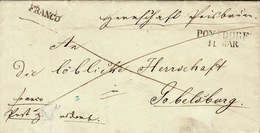 FRANCO
Herrschaft
POYSDORF
11. MAR
An
die löbliche Herrschaft
franco
in Gobelsburg.